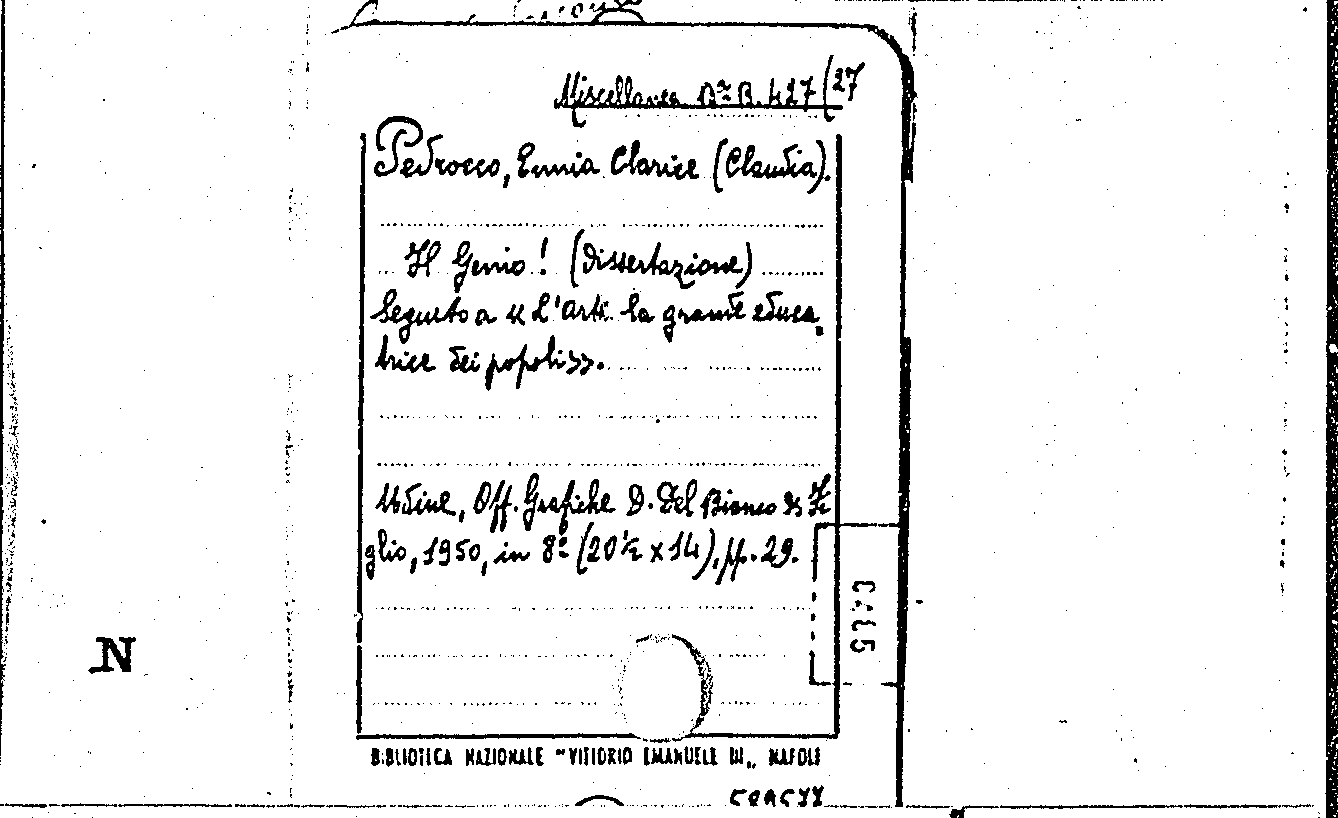 Miscellanea Bª B. 427/27
Pedrocco, Ennia Clarice (Claudia).
Il Genio! (dissertazione)
Seguito a « L'arte la grande educa-
trice dei popoli ».
Udine, Off. Grafiche D. Del Bianco & Fi
glio, 1950, in 8º (20½ x 14), pp. 29.
N
BIBLIOTECA NAZIONALE "VITTORIO EMANUELE III„ NAPOLI